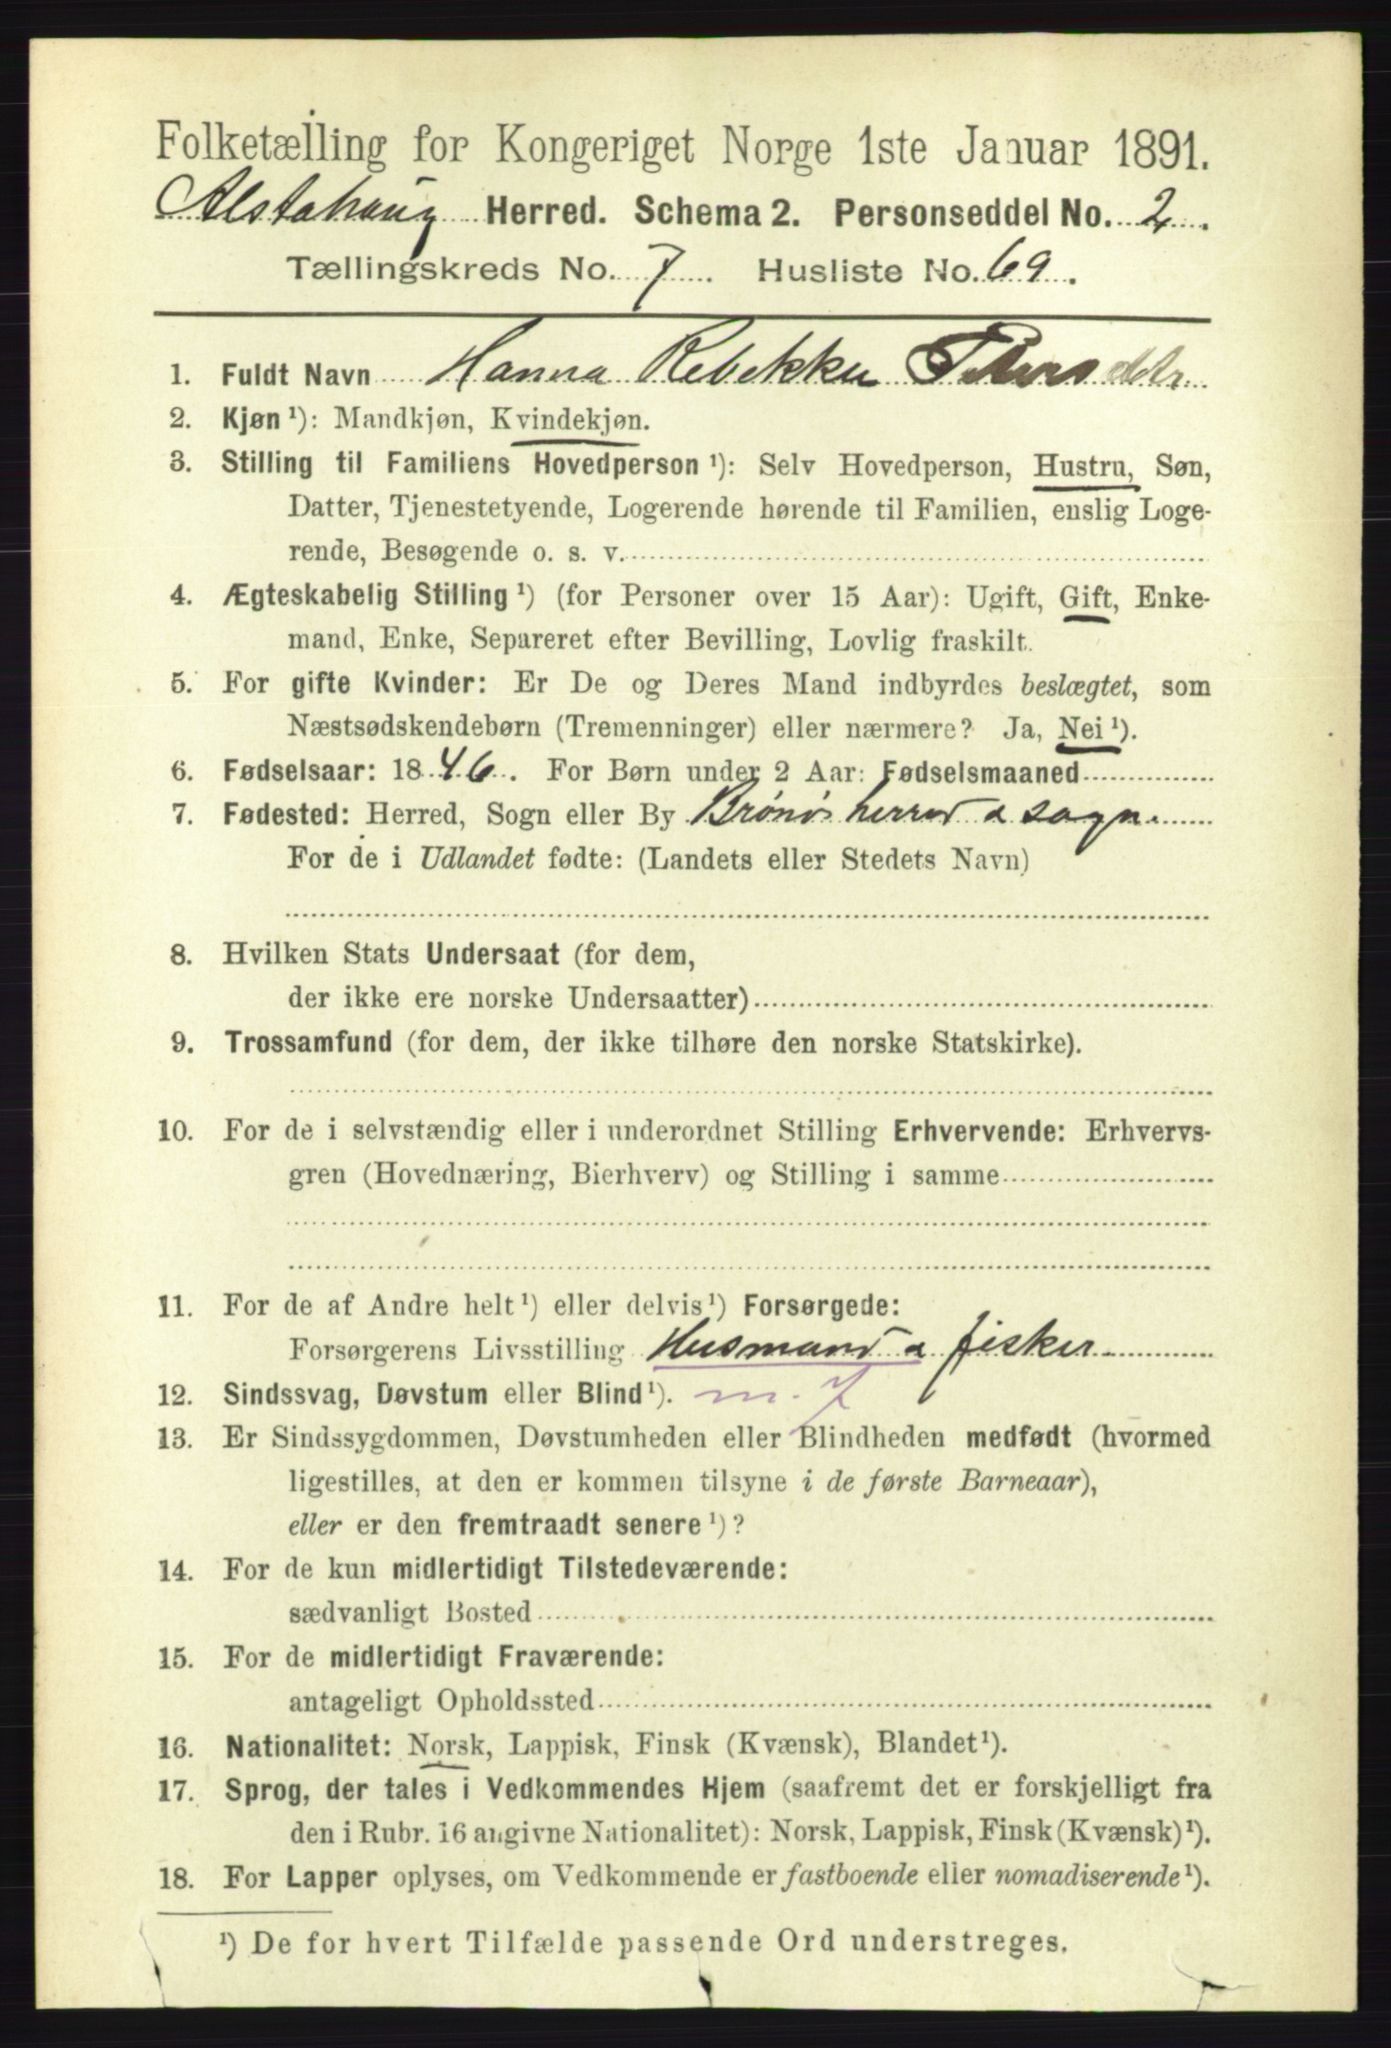 Folketælling for Kongeriget Norge 1ste Januar 1891.
Alstahaug Herred. Schema 2. Personseddel No. 2.
Tællingskreds No. 7. Husliste No. 69.
1. Fuldt Navn Hanna Rebekka Petersdtr.
2. Kjøn ¹): Mandkjøn, Kvindekjøn.
3. Stilling til Familiens Hovedperson ¹): Selv Hovedperson, Hustru, Søn,
Datter, Tjenestetyende, Logerende hørende til Familien, enslig Loge-
rende, Besøgende o. s. v.
4. Ægteskabelig Stilling ¹) (for Personer over 15 Aar): Ugift, Gift, Enke-
mand, Enke, Separeret efter Bevilling, Lovlig fraskilt.
5. For gifte Kvinder: Er De og Deres Mand indbyrdes beslægtet, som
Næstsødskendebørn (Tremenninger) eller nærmere? Ja, Nei ¹).
6. Fødselsaar: 1846. For Børn under 2 Aar: Fødselsmaaned
7. Fødested: Herred, Sogn eller By Brønø herred & sogn.
For de i Udlandet fødte: (Landets eller Stedets Navn)
8. Hvilken Stats Undersaat (for dem,
der ikke ere norske Undersaatter)
9. Trossamfund (for dem, der ikke tilhøre den norske Statskirke).
10. For de i selvstændig eller i underordnet Stilling Erhvervende: Erhvervs-
gren (Hovednæring, Bierhverv) og Stilling i samme
11. For de af Andre helt ¹) eller delvis ¹) Forsørgede:
Forsørgerens Livsstilling Husmand & fisker
12. Sindssvag, Døvstum eller Blind ¹). m. J
13. Er Sindssygdommen, Døvstumheden eller Blindheden medfødt (hvormed
ligestilles, at den er kommen tilsyne i de første Barneaar),
eller er den fremtraadt senere ¹)?
14. For de kun midlertidigt Tilstedeværende:
sædvanligt Bosted
15. For de midlertidigt Fraværende:
antageligt Opholdssted
16. Nationalitet: Norsk, Lappisk, Finsk (Kvænsk), Blandet ¹).
17. Sprog, der tales i Vedkommendes Hjem (saafremt det er forskjelligt fra
den i Rubr. 16 angivne Nationalitet): Norsk, Lappisk, Finsk (Kvænsk) ¹).
18. For Lapper oplyses, om Vedkommende er fastboende eller nomadiserende ¹).
¹) De for hvert Tilfælde passende Ord understreges.